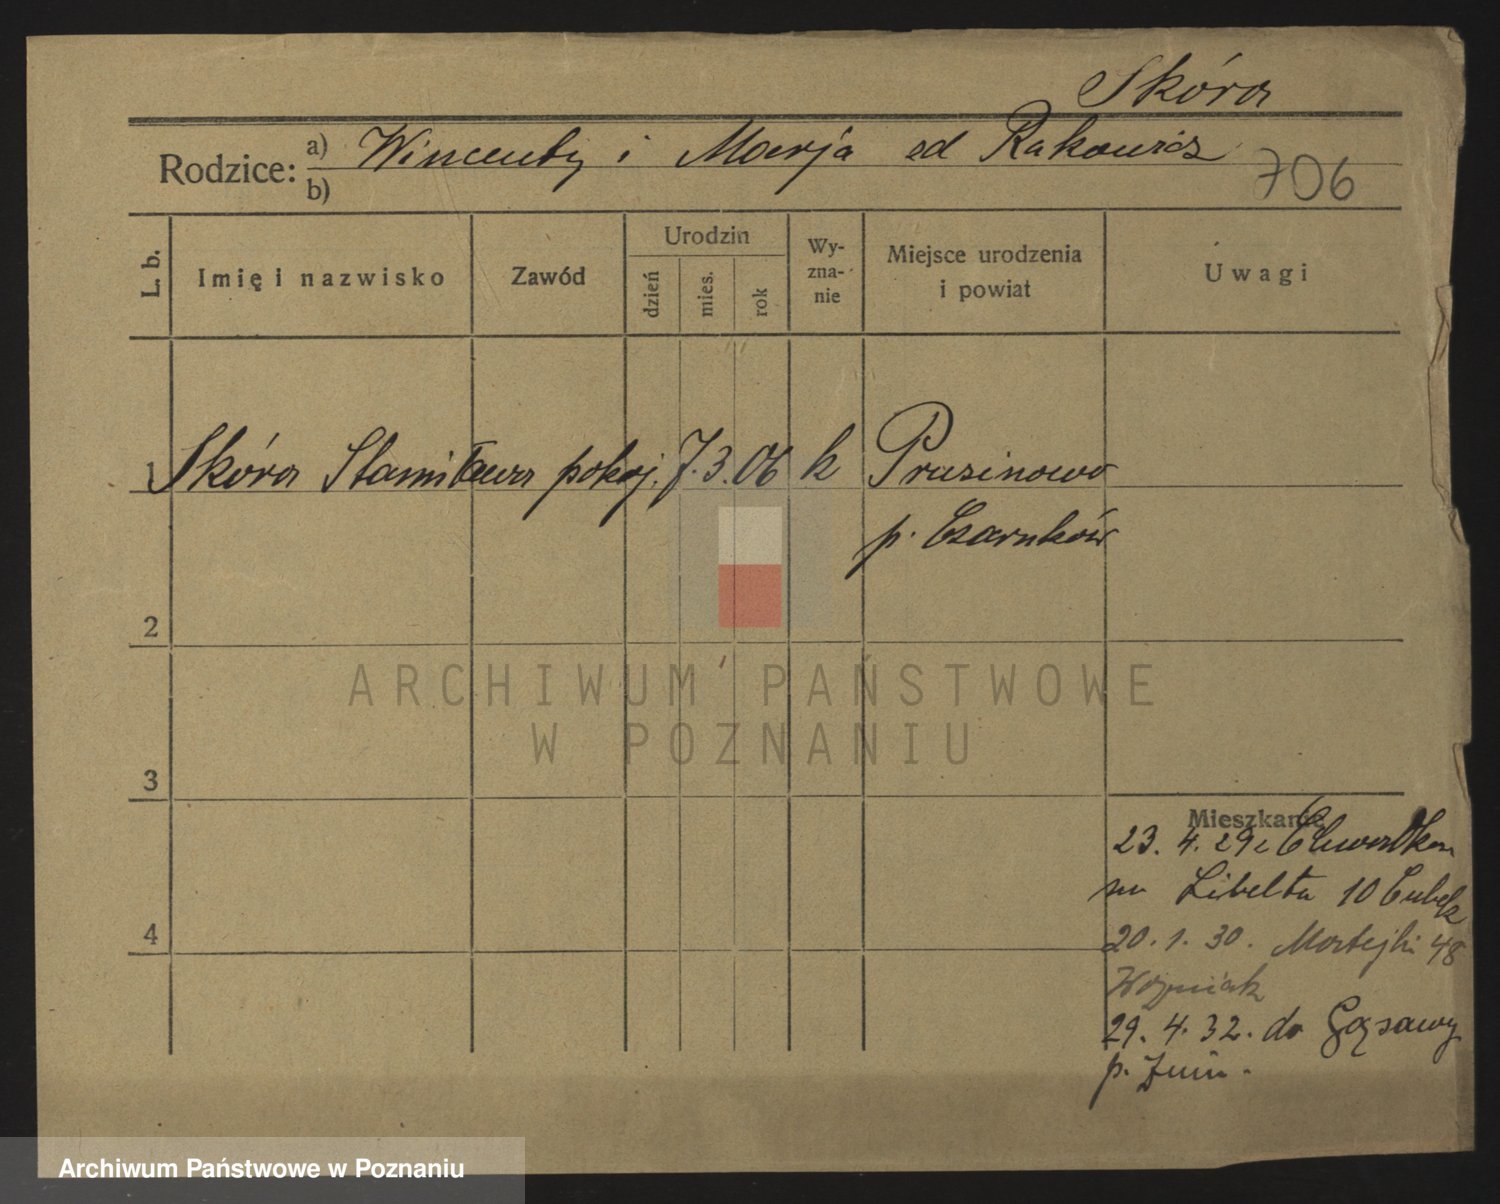 Skóra
Rodzice: a) Wincenty i Marja zd Rakowicz
b)
706
L. b.
Imię i nazwisko
Zawód
Urodzin
dzień
mies.
rok
Wy-
zna-
nie
Miejsce urodzenia
i powiat
Uwagi
1 Skóra Stanisława pokoj. 7. 3. 06 k Prusinowo
p. Czarnków
2
ARCHIWUM PAŃSTWOWE
W POZNANIU
3
Mieszkanie
23. 4. 29
Libelta 10
4
20. 1. 30. 48
Woźniak
29. 4. 32. do Gąsawy
p. Żnin.
Archiwum Państwowe w Poznaniu